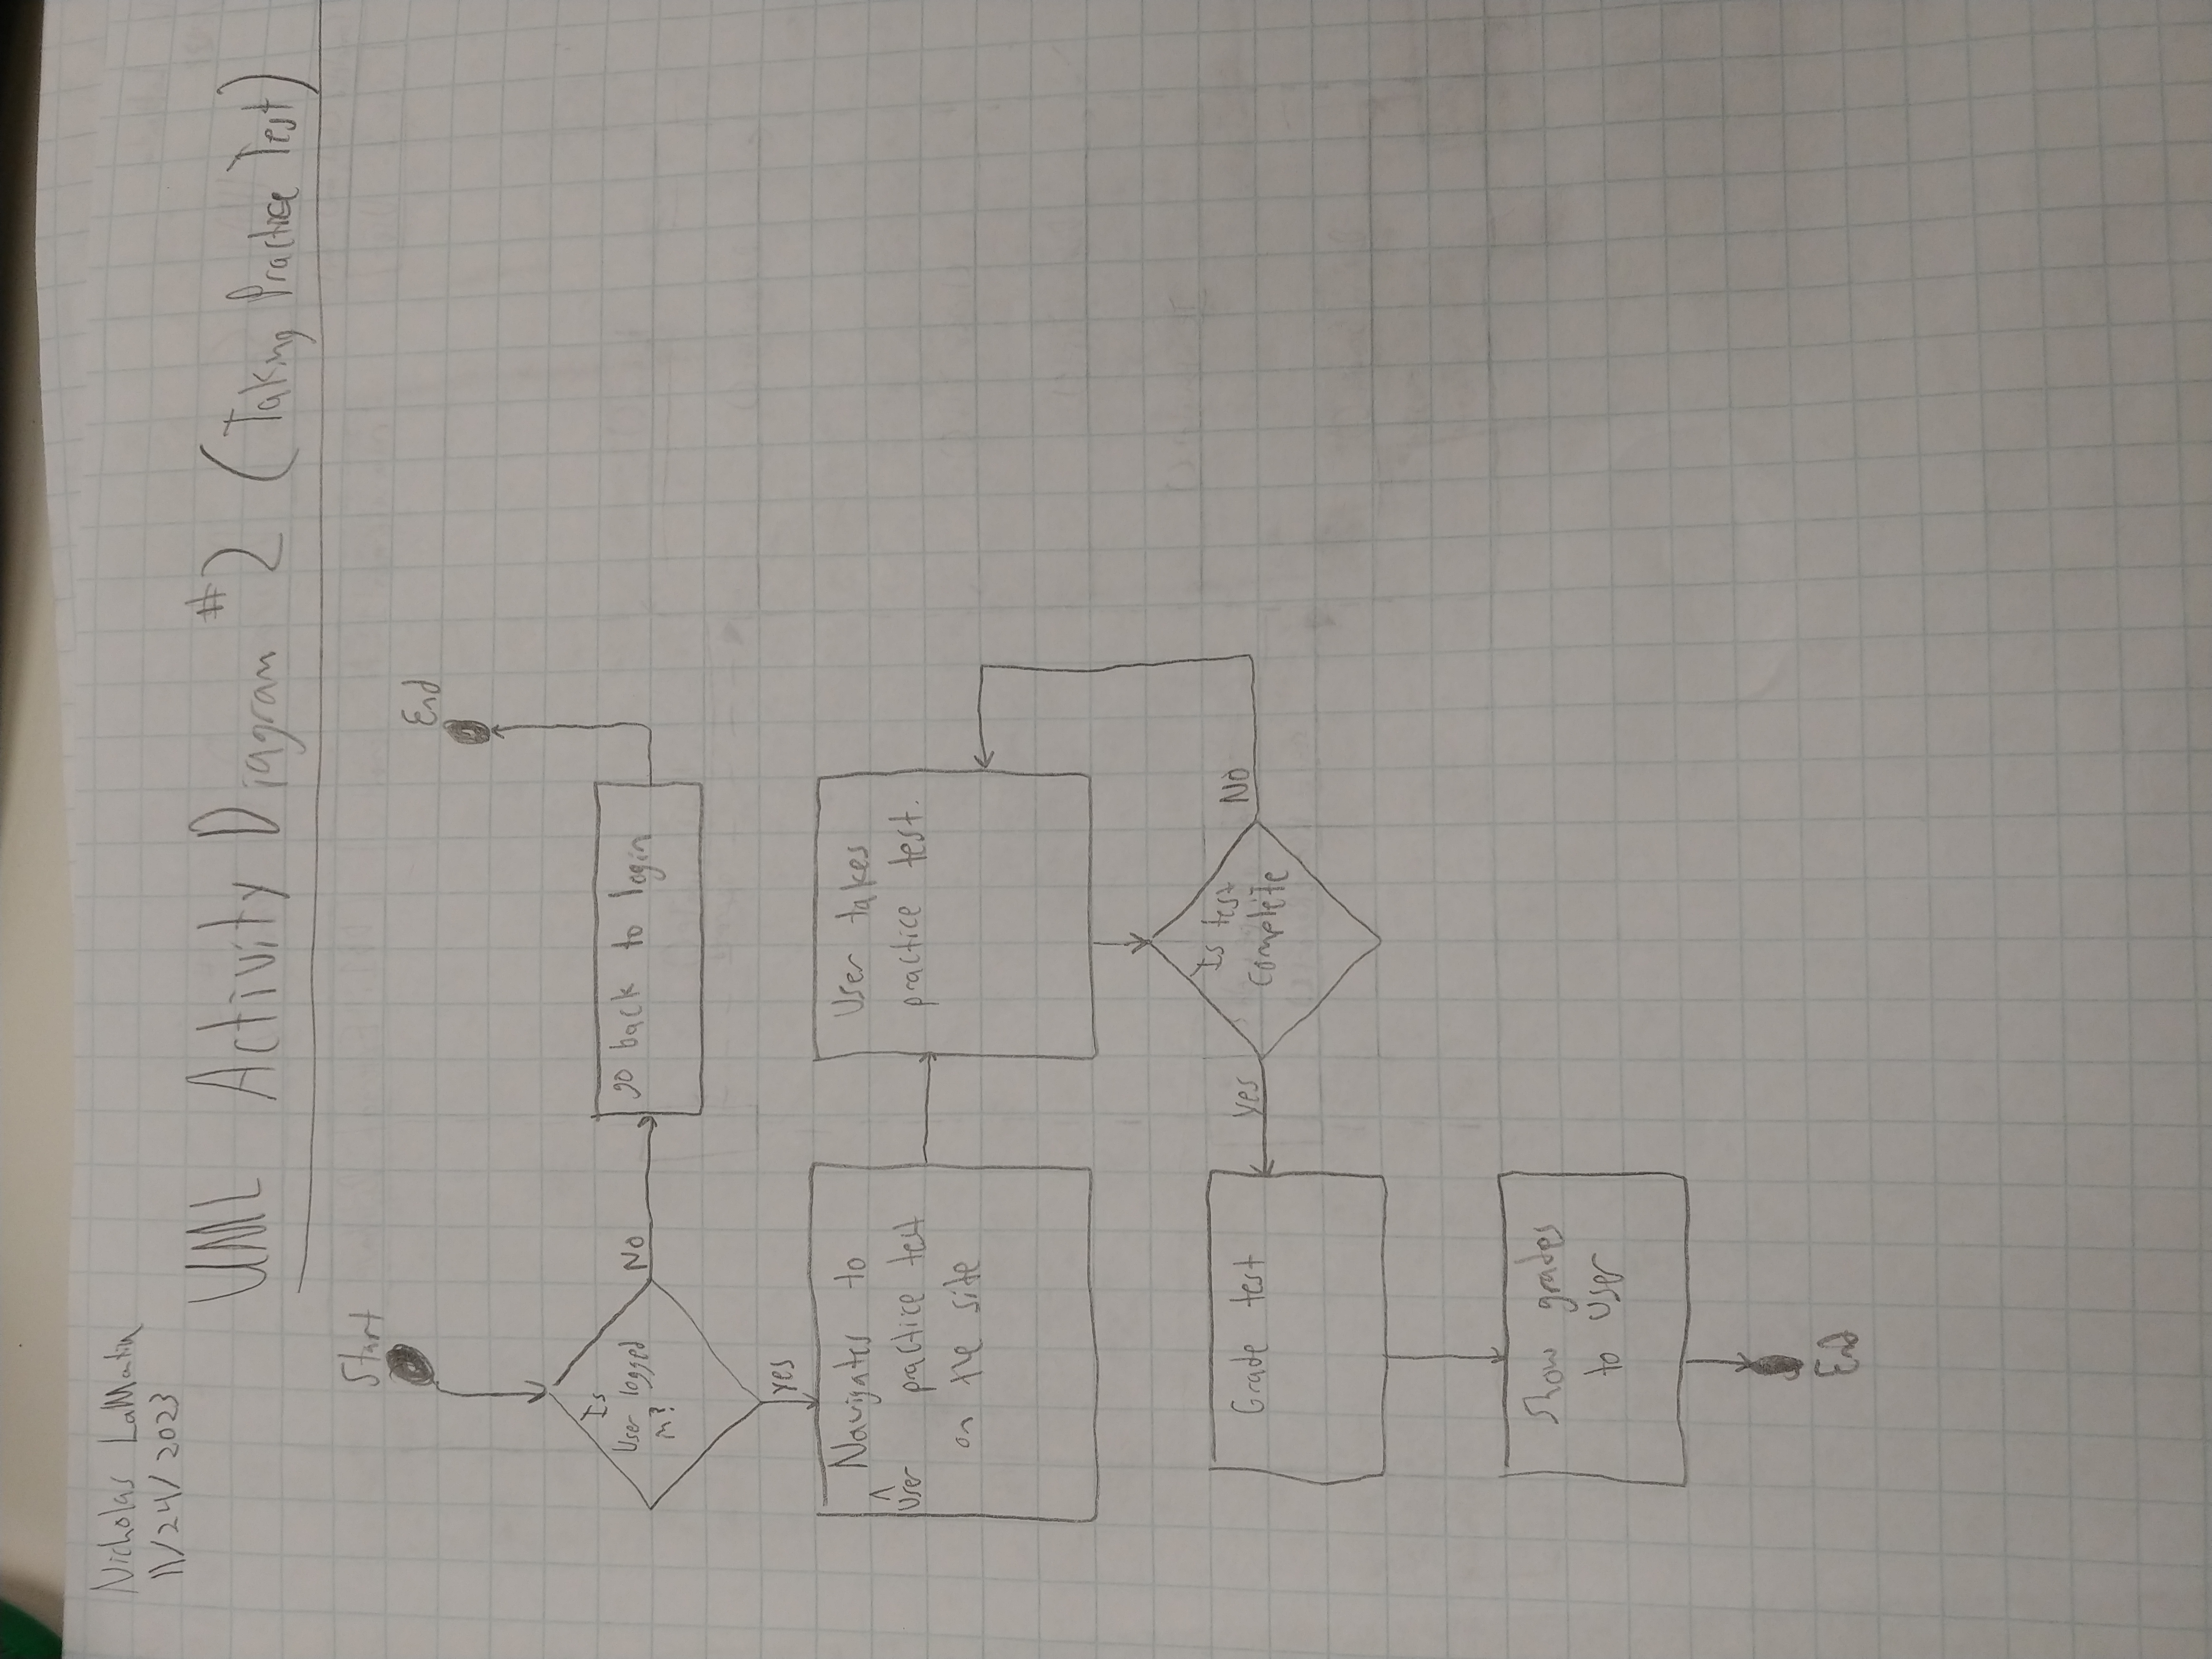 Nicholas LaMartin
11/24/2023
UML Activity Diagram #2 (Taking Practice Test)
Start
End
Is
User logged
in?
No
go back to login
yes
Navigates to
^
User practice test
on the site
User takes
practice test.
Is test
complete
No
yes
Grade test
Show grades
to user
End